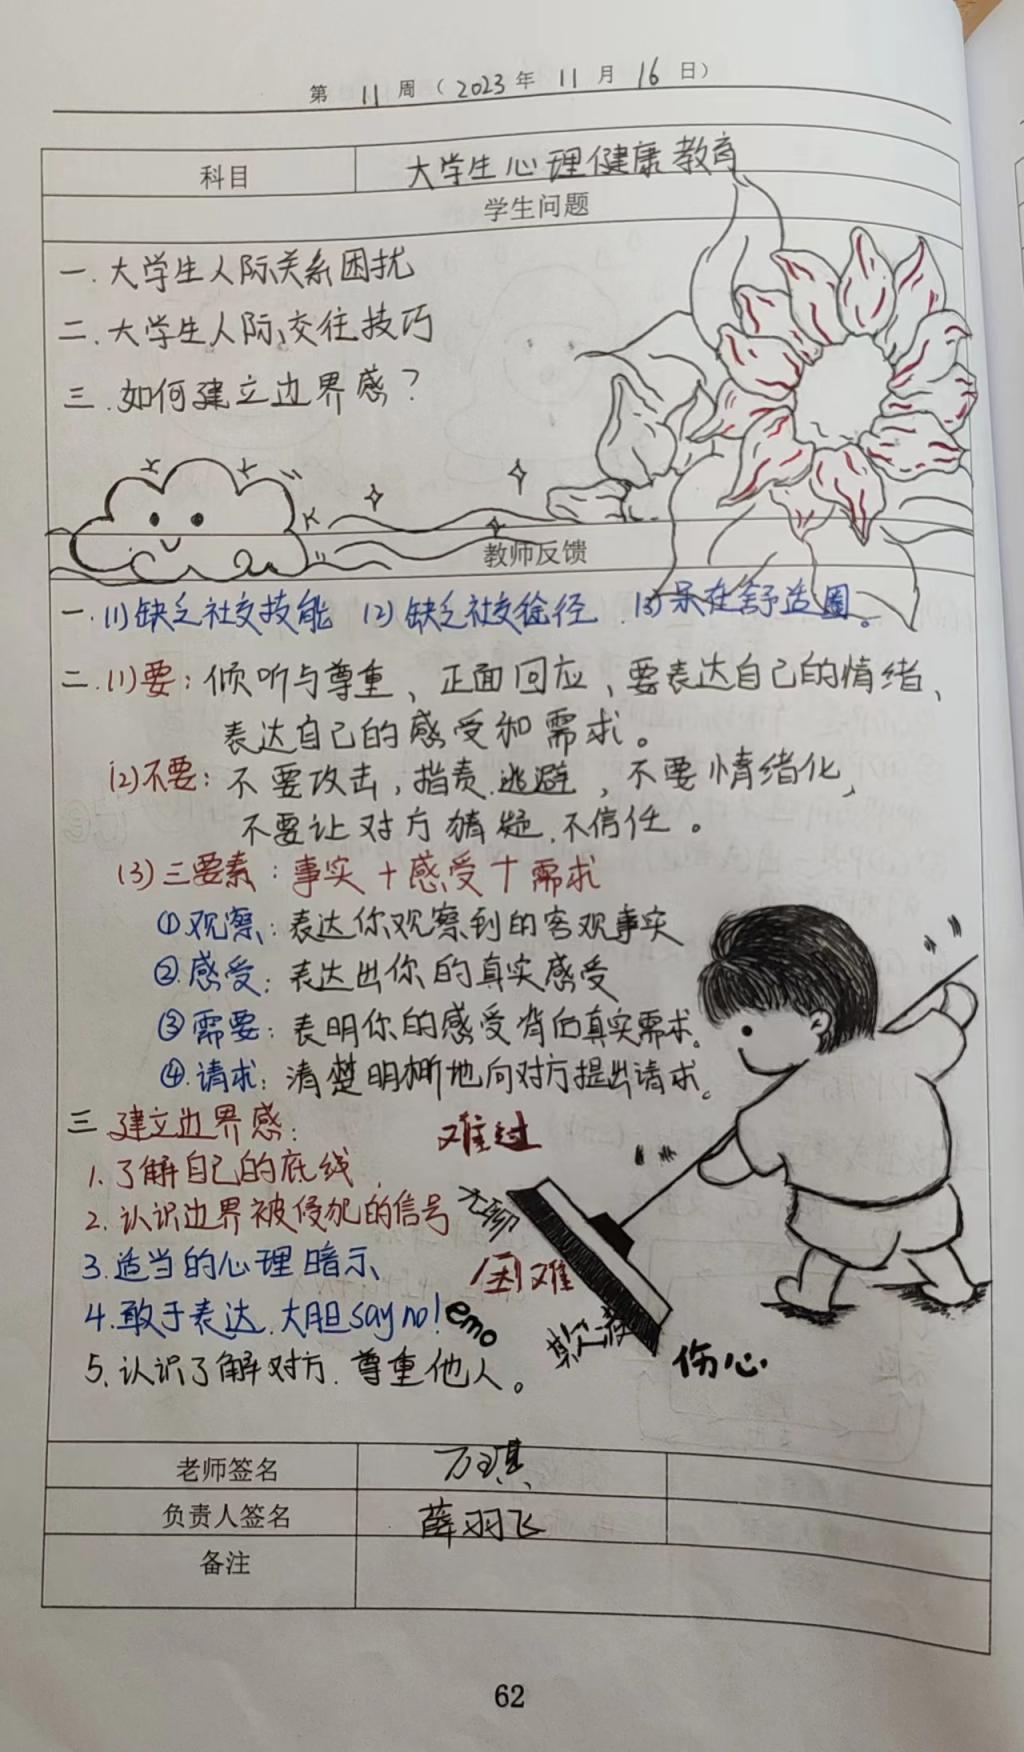 第 11 周（2023 年 11 月 16 日）
科目 大学生心理健康教育
学生问题
一.大学生人际关系困扰
二.大学生人际交往技巧
三.如何建立边界感？
教师反馈
一.(1)缺乏社交技能 (2)缺乏社交途径 .(3)呆在舒适圈。
二.(1)要：倾听与尊重、正面回应，要表达自己的情绪、
表达自己的感受和需求。
(2)不要：不要攻击，指责.逃避，不要情绪化，
不要让对方猜疑.不信任。
(3)三要素：事实+感受+需求
①观察：表达你观察到的客观事实
②.感受：表达出你的真实感受
③需要：表明你的感受背后真实需求。
④.请求：清楚明晰地向对方提出请求。
三 建立边界感：
1.了解自己的底线.
2.认识边界被侵犯的信号
3.适当的心理暗示
4.敢于表达.大胆say no!
5.认识了解对方.尊重他人。
难过
无聊
困难
emo
伤心
老师签名 万琪
负责人签名 薛羽飞
备注
62